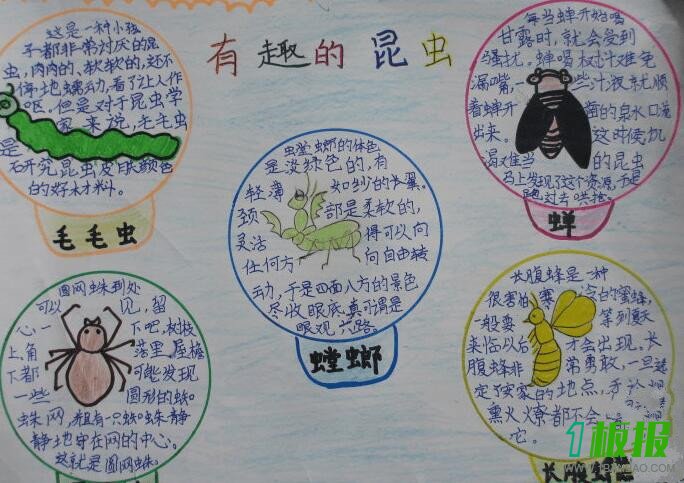 有趣的昆虫
这是一种小孩
子都非常讨厌的昆
虫，肉肉的、软软的，还不
停地蠕动，看了让人作
呕。但是对于昆虫学
家来说，毛毛虫
是
研究昆虫皮肤颜色
的好材料。
毛毛虫
螳螂的体色
是淡绿色的，有
轻薄如纱的长翼。
颈部是柔软的，
灵活得可以向
任何方向自由转
动，于是四面八方的景色
尽收眼底，真可谓是
眼观六路。
螳螂
每当蝉开始喝
甘露时，就会受到
骚扰。蝉喝树汁难免
漏嘴，一些汁液就顺
着蝉开凿的泉水口流
出来，这时候饥
渴难当的昆虫
马上发现了这个资源，于是
跑过去哄抢。
蝉
圆网蛛到处
可以见，留
心一下吧，树枝
上，角落里，屋檐
下都可能发现
一些圆形的蛛
蛛网，并且有一只蜘蛛静
静地守在网的中心。
这就是圆网蛛。
长腹蜂是一种
很害怕寒冷的蜜蜂，
一般要等到夏天
来临以后才会出现。长
腹蜂非常勇敢，一旦选
定了安家的地点，
熏火燎都不会
它。
长腹蜂
1板报